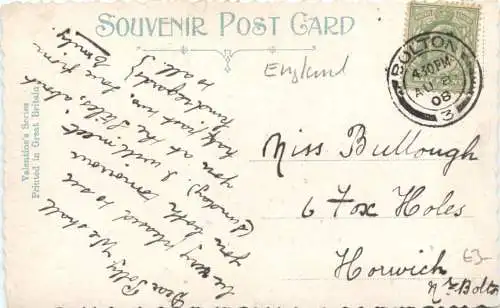 SOUVENIR POST CARD
England
BOLTON
4.30PM
AU 8
08
3
Valentine's Series
Printed in Great Britain
Dear Polly, We shall
be very pleased to see
you both tomorrow
(Sunday) I will meet
you at the Stiles, about
half past two, love from
Kind regards
to all.
Emily
Miss Bullough
6 Fox Holes
Horwich
Nr Bolton
£3-